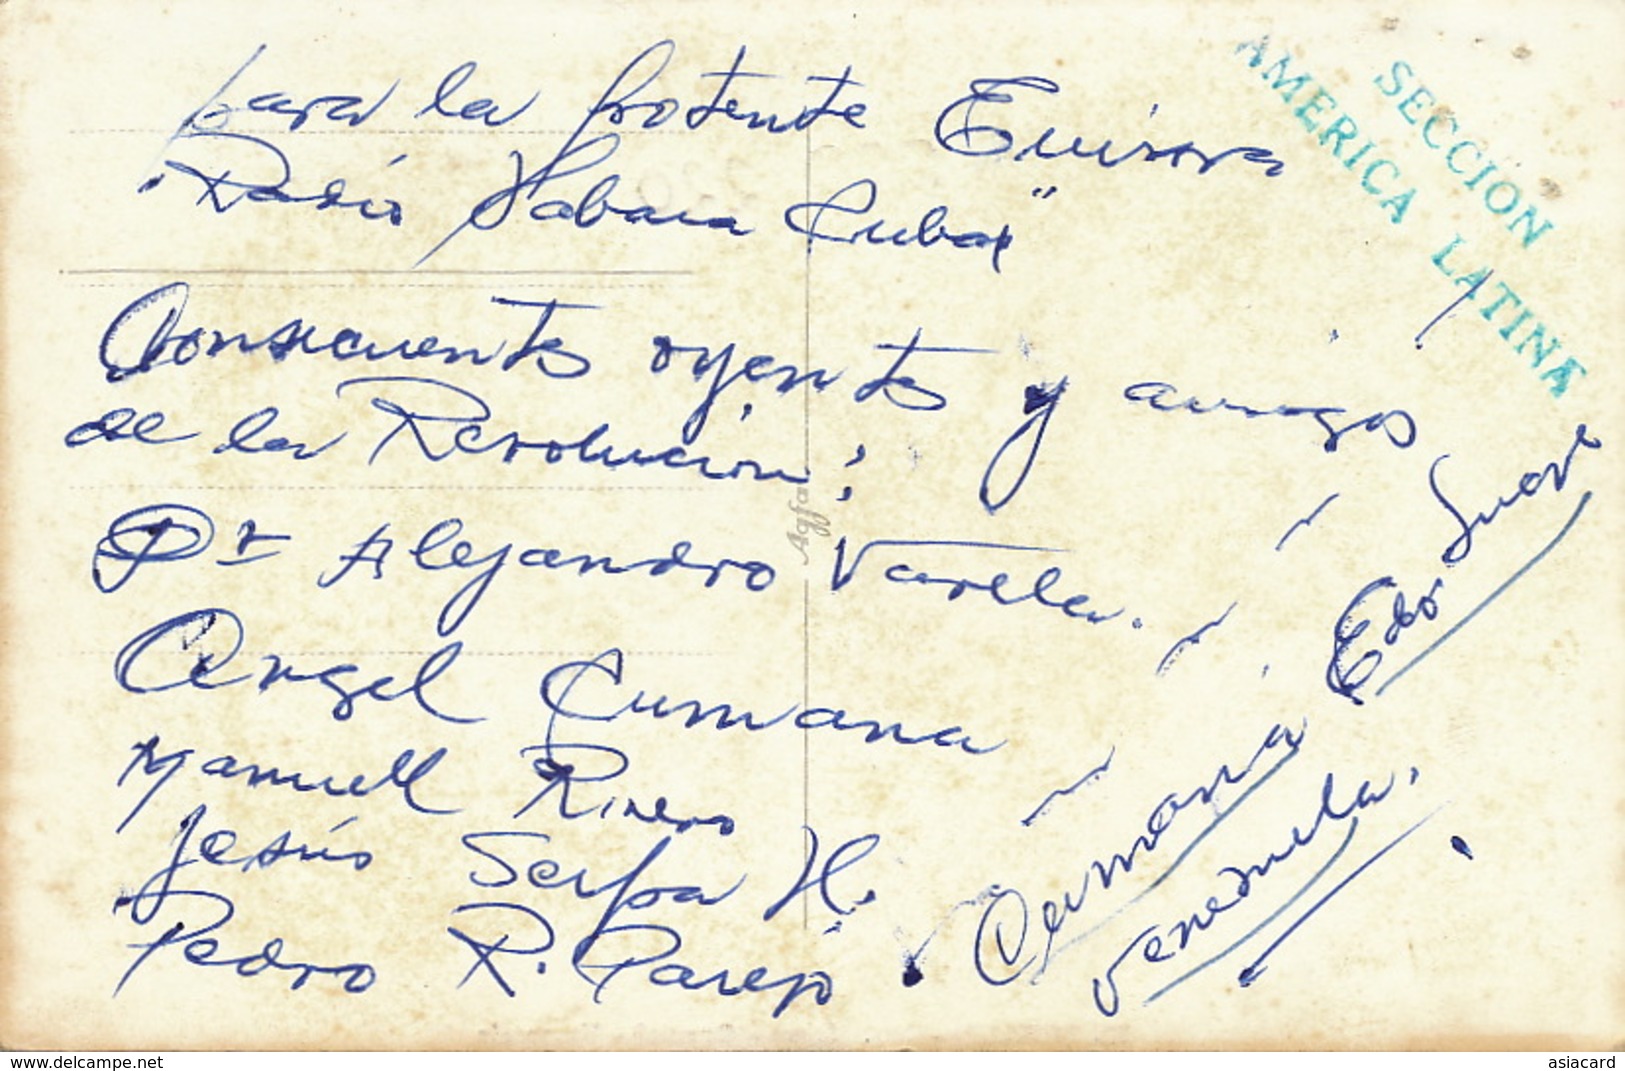 para la potente Emisora
"Radio Habana Cuba"
SECCION
AMERICA LATINA
Consecuentes oyentes y amigos
de la Revolucion:
Dr Alejandro Varela.
Angel Cumana
Manuell Rivero
Jesús Serpa H.
Pedro R. Parejo
Cumana Edo. Sucre
Venezuela.
Agfa
www.delcampe.net
asiacard